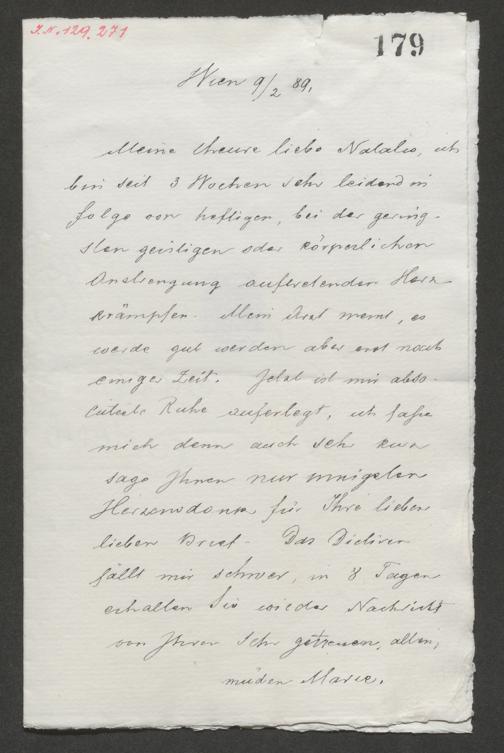 I.N. 129.271
179
Wien 9/2 89.
Meine theure liebe Natalie, ich
bin seit 3 Wochen sehr leidend in
folge von heftigen, bei der gering-
sten geistigen oder körperlichen
Anstrengung auftretenden Herz
krämpfen. Mein Arzt meint, es
werde gut werden aber erst nach
einiger Zeit. Jetzt ist mir abso-
luteste Ruhe auferlegt, ich fasse
mich denn auch sehr kurz
sage Ihnen nur innigsten
Herzensdank für Ihre lieben
lieben Brief. Das Dictiren
fällt mir schwer, in 8 Tagen
erhalten Sie wieder Nachricht
von Ihrer sehr getreuen, alten,
müden Marie.